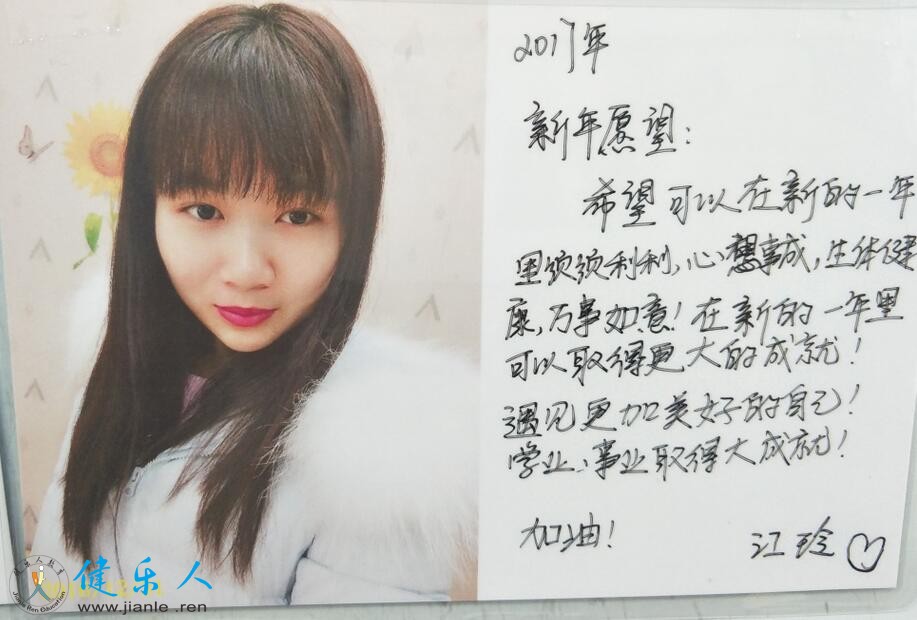 2017年
新年愿望：
希望可以在新的一年
里顺顺利利，心想事成，生体健
康，万事如意！在新的一年里
可以取得更大的成就！
遇见更加美好的自己！
学业、事业取得大成就！
加油！
江玲
健乐人
www.jianle.ren